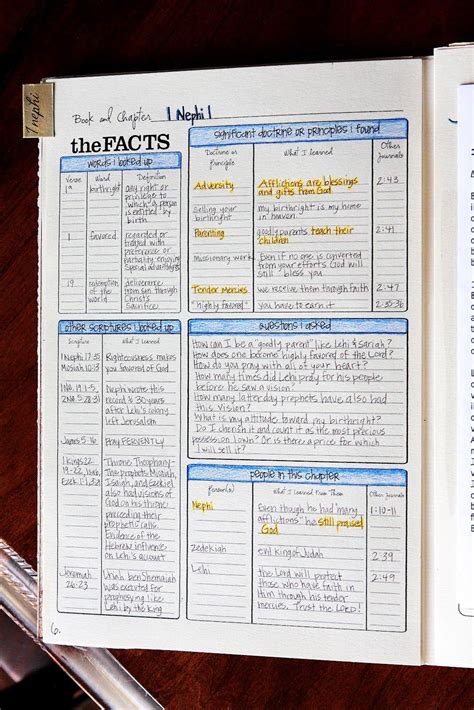 1 nephi
Book and Chapter 1 Nephi 1
the FACTS
words i looked up
Verse Word Definition
1a birthright any right or
privilege to
which a person
is entitled by
birth
1 favored regarded or
treated with
preference or
partiality, enjoying
special advantages
19 redemption of
the world
deliverance
from sin through
Christ's
sacrifice
other scriptures i looked up
Scripture What I Learned
1 Nephi 17:35
Mosiah 10:13
Righteousness makes
you favored of God
1 Ne. 19:1-5
2 Ne. 5:28-31
Nephi wrote this
record @ 30 years
after Lehi's colony
left Jerusalem
James 5:16 Pray FERVENTLY
1 Kings 22
19-22, Isa 6
Ezek 1
Throne Theophany-
The prophets Micaiah,
Isaiah, and Ezekiel
also had visions of
God on his throne
preceding their
prophetic calls.
Evidence of the
Hebrew influence
on Lehi's account
Jeremiah
26:23
Uriah ben Shemaiah
was executed for
prophesying like
Lehi by the king
6.
significant doctrine or principles i found
Doctrine or
Principle
What I Learned
Other
Journals
Adversity Afflictions are blessings
and gifts from God
2:43
Selling your
birthright
my birthright is my home
in heaven
Parenting goodly parents teach their
children
2:41
Missionary work Even if no one is converted
from your efforts God will
still "bless you
Tender Mercies we receive them through faith 2:47
"highly favored" you have to earn it 2:35-36
questions i asked
How can I be a "goodly parent" like Lehi & Sariah?
How does one become highly favored of the Lord?
How do you pray with all of your heart?
How many times did Lehi pray for his people
before he saw a vision?
How many latterday prophets have also had
this vision?
What is my attitude toward my birthright?
Do I cherish it and count it as the most precious
possession I own? Or is there a price for which
I will sell it?
people in this chapter
Person(s) What I Learned From Them Other Journals
Nephi Even though he had many
afflictions" he still praised
God
1:10-11
zedekiah evil King of Judah 2:39
Lehi the Lord will protect
those who have faith in
Him through his tender
mercies. Trust the LORD!
2:49